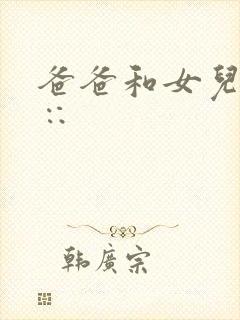 爸爸和女兒
::
韩廣宗